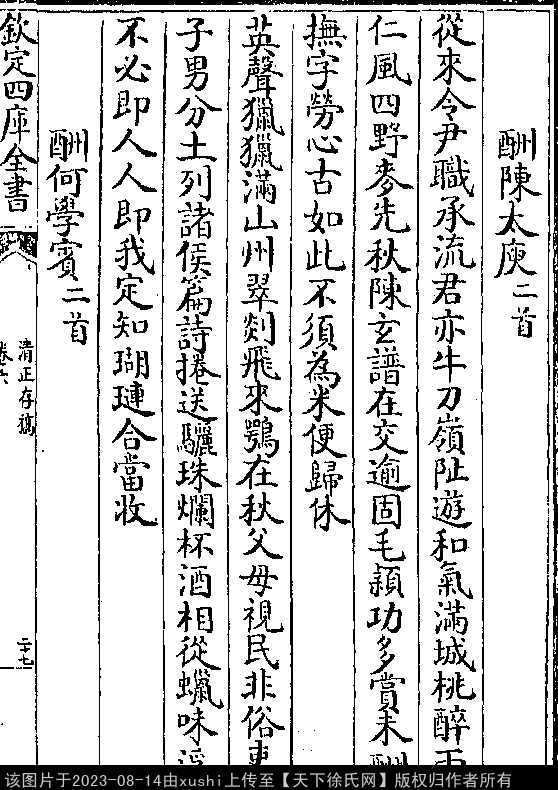 酬陳太庾二首
從來令尹職承流君亦牛刀嶺阯遊和氣滿城桃醉雨
仁風四野麥先秋陳玄譜在交逾固毛穎功多賞未酬
撫字勞心古如此不須為米便歸休
英聲獵獵滿山州翠剡飛來鶚在秋父母視民非俗吏
子男分土列諸侯篇詩捲送驪珠爛杯酒相從蠟味
不必即人人即我定知瑚璉合當收
酬何學賓二首
欽定四庫全書
清正存稿
卷六
二十七
该图片于2023-08-14由xushi上传至【天下徐氏网】版权归作者所有